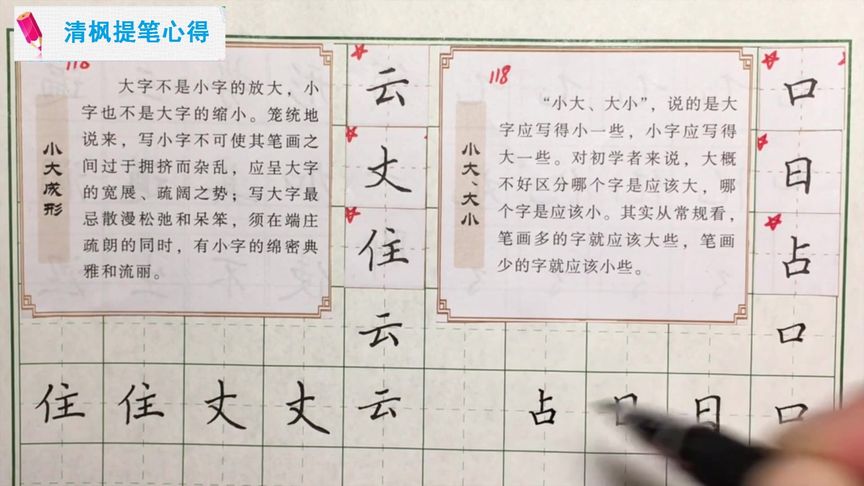 清枫提笔心得
118
小大成形
大字不是小字的放大，小
字也不是大字的缩小。笼统地
说来，写小字不可使其笔画之
间过于拥挤而杂乱，应呈大字
的宽展、疏阔之势；写大字最
忌散漫松弛和呆笨，须在端庄
疏朗的同时，有小字的绵密典
雅和流丽。
云
丈
住
云
118
小大、大小
“小大、大小”，说的是大
字应写得小一些，小字应写得
大一些。对初学者来说，大概
不好区分哪个字是应该大，哪
个字是应该小。其实从常规看，
笔画多的字就应该大些，笔画
少的字就应该小些。
口
日
占
口
住 住 丈 丈 云 占 日 口